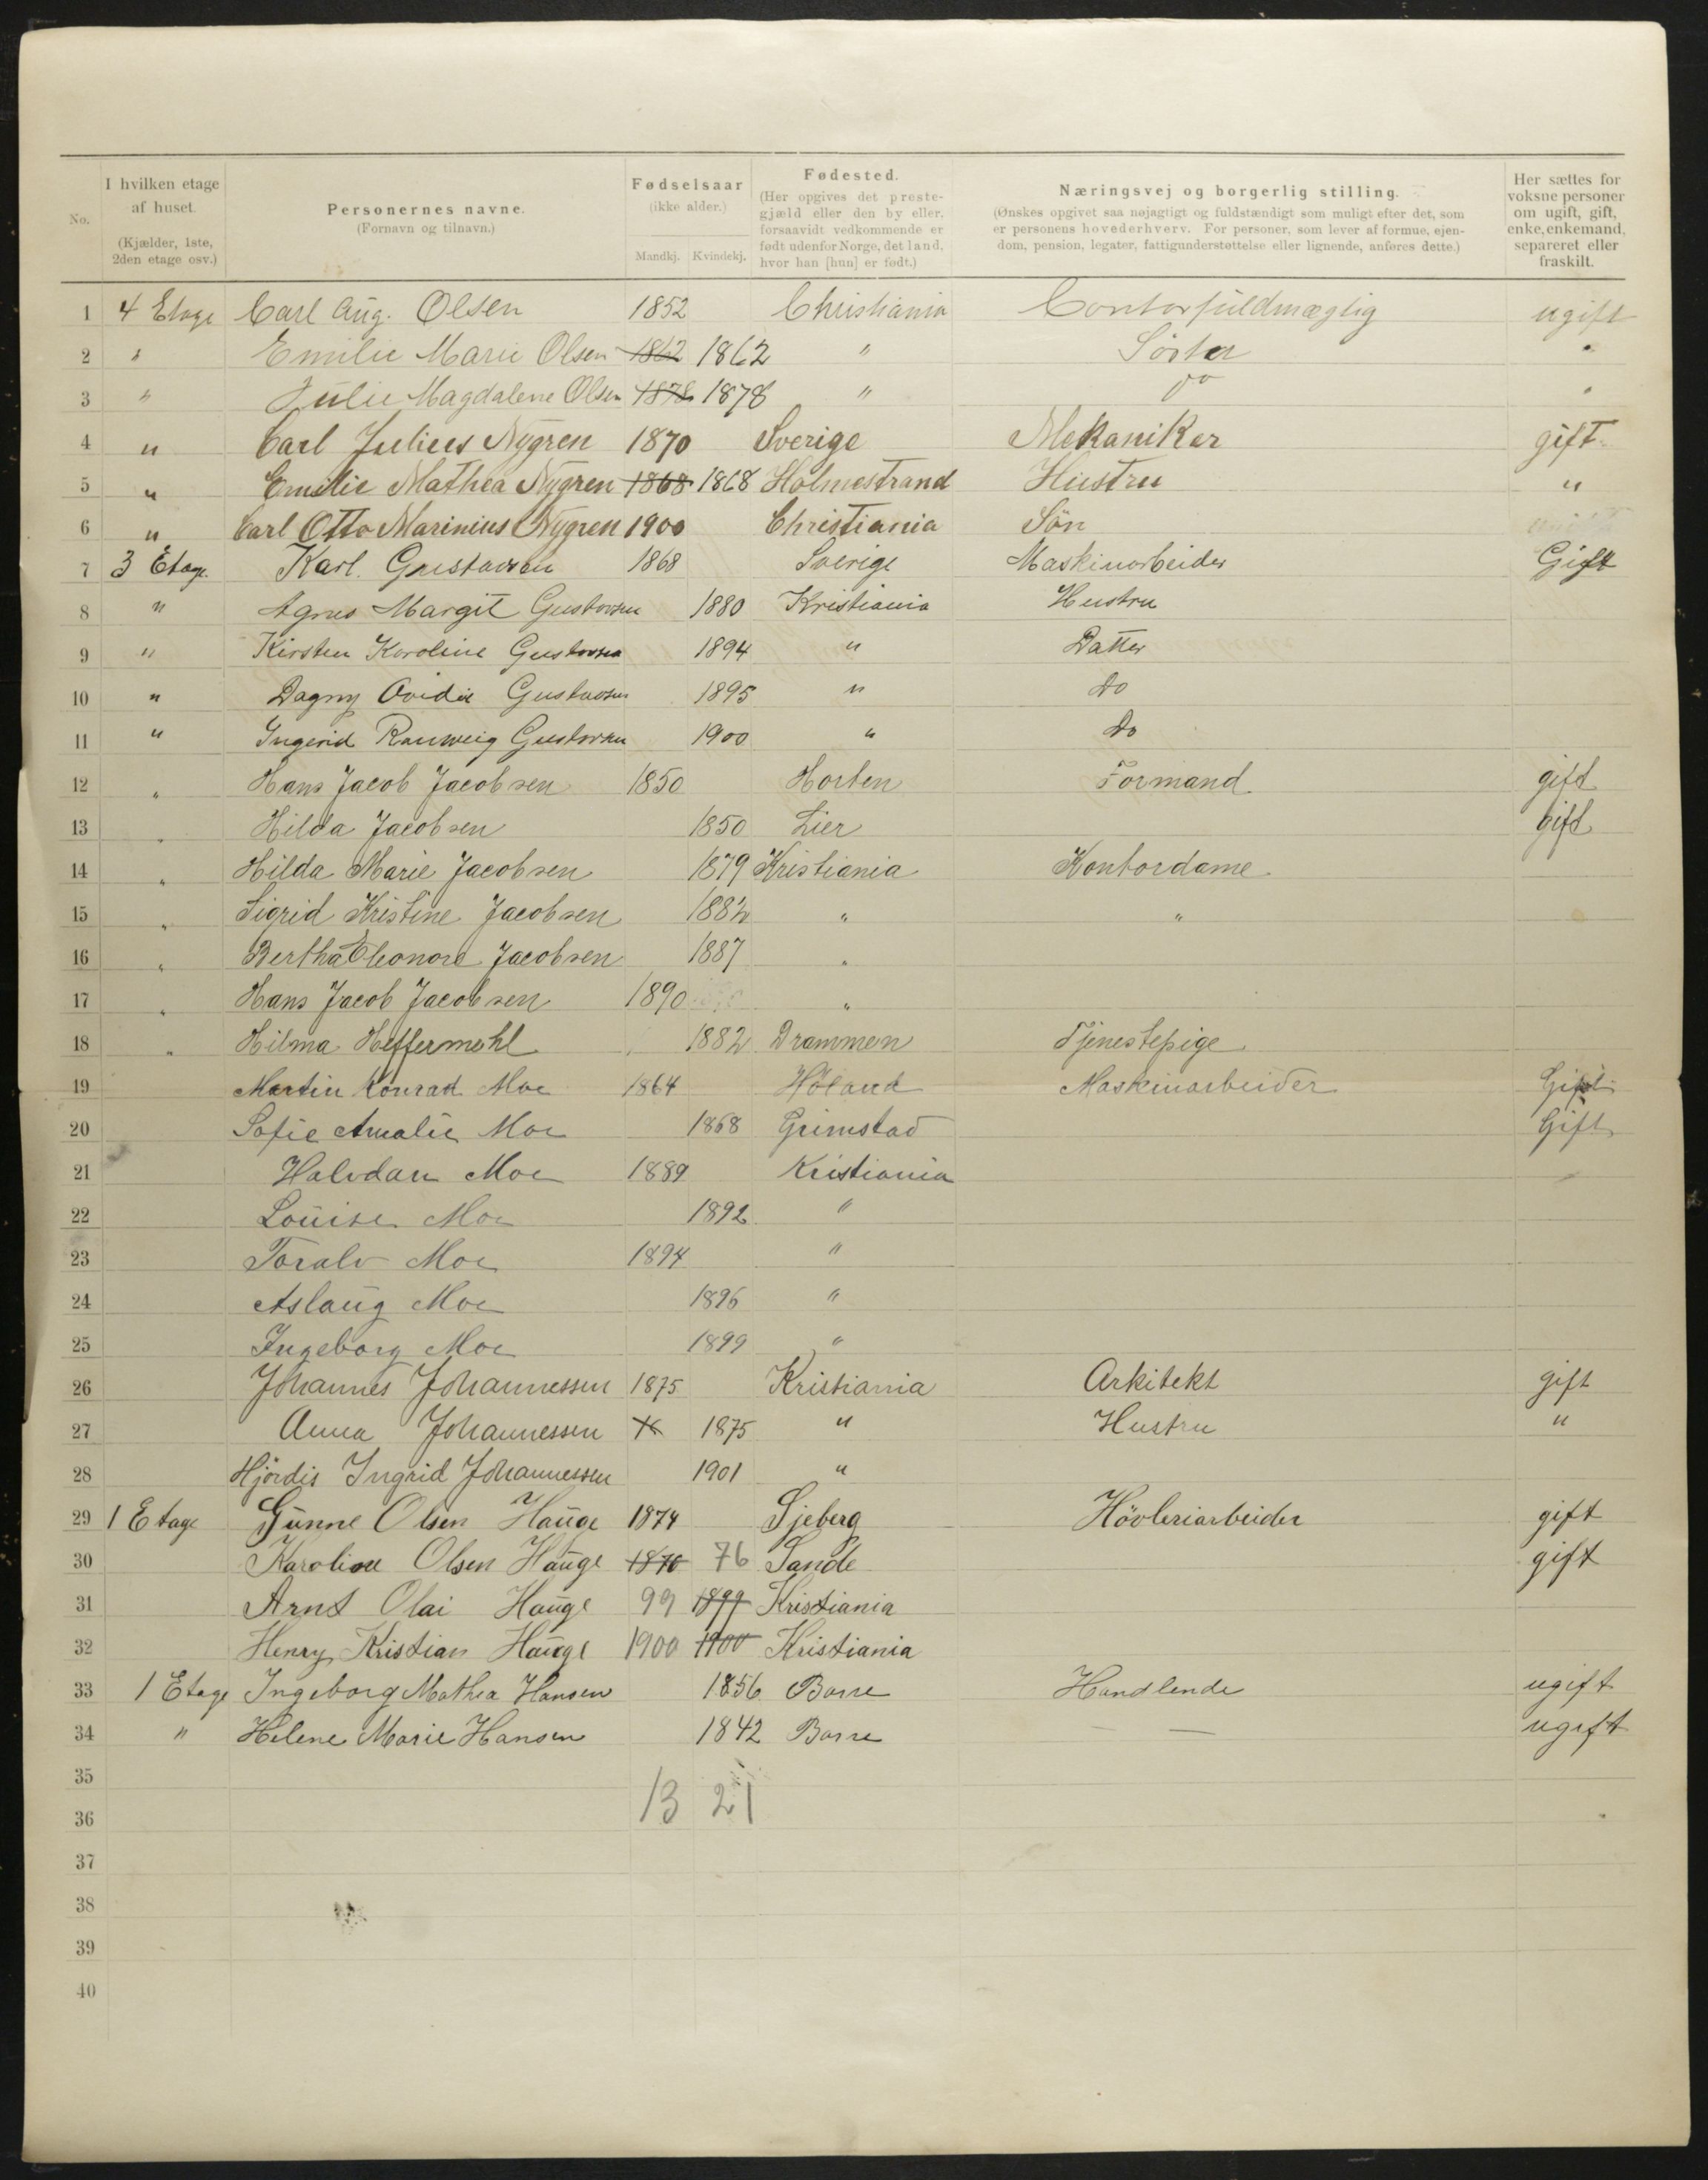 No.
I hvilken etage af huset. (Kjælder, 1ste, 2den etage osv.)
Personernes navne. (Fornavn og tilnavn.)
Fødselsaar (ikke alder.) Mandkj. Kvindekj.
Fødested. (Her opgives det prestegjæld eller den by eller, forsaavidt vedkommende er født udenfor Norge, det land, hvor han [hun] er født.)
Næringsvej og borgerlig stilling. (Ønskes opgivet saa nøjagtigt og fuldstændigt som muligt efter det, som er personens hovederhverv. For personer, som lever af formue, ejendom, pension, legater, fattigunderstøttelse eller lignende, anføres dette.)
Her sættes for voksne personer om ugift, gift, enke, enkemand, separeret eller fraskilt.
1 4 Etage Carl Aug. Olsen 1852 Christiania Contorfuldmægtig ugift
2 " Emilie Marie Olsen 1862 1862 " Söster "
3 " Julie Magdalene Olsen 1878 1878 " do "
4 " Carl Julius Nygren 1870 Sverige Mekaniker gift
5 " Emilie Mathea Nygren 1868 1868 Holmestrand Hustru "
6 " Carl Otto Marinius Nygren 1900 Christiania Sön
7 3 Etage. Karl. Gustavsen 1868 Sverige Maskinarbeider Gift
8 " Agnes Margit Gustavsen 1880 Kristiania Hustru
9 " Kirsten Karoline Gustavsen 1894 " Datter
10 " Dagny Ovidia Gustavsen 1895 " Do
11 " Ingerid Ranweig Gustavsen 1900 " Do
12 " Hans Jacob Jacobsen 1850 Horten Formand gift
13 " Hilda Jacobsen 1850 Lier gift
14 " Hilda Marie Jacobsen 1879 Kristiania Kontordame
15 " Sigrid Kristine Jacobsen 1882 " "
16 " Bertha Eleonore Jacobsen 1887 "
17 " Hans Jacob Jacobsen 1890 "
18 " Hilma Heffermehl 1882 Drammen Tjenestepige
19 Martin Konrad Moe 1864 Höland Maskinarbeider Gift
20 Sofie Amalie Moe 1868 Grimstad Gift
21 Halvdan Moe 1889 Kristiania
22 Louise Moe 1892 "
23 Toralv Moe 1894 "
24 Aslaug Moe 1896 "
25 Ingeborg Moe 1899 "
26 Johannes Johannessen 1875 Kristiania Arkitekt gift
27 Anna Johannessen 1875 " Hustru "
28 Hjördis Ingrid Johannessen 1901 "
29 1 Etage Gunne Olsen Hauge 1874 Sjeberg Hövleriarbeider gift
30 Karoline Olsen Hauge 1876 76 Sande gift
31 Arnt Olai Hauge 99 1899 Kristiania
32 Henry Kristian Hauge 1900 1900 Kristiania
33 1 Etage Ingeborg Mathea Hansen 1856 Borre Handlende ugift
34 " Helene Marie Hansen 1842 Borre — — ugift
35
36 13 21
37
38
39
40